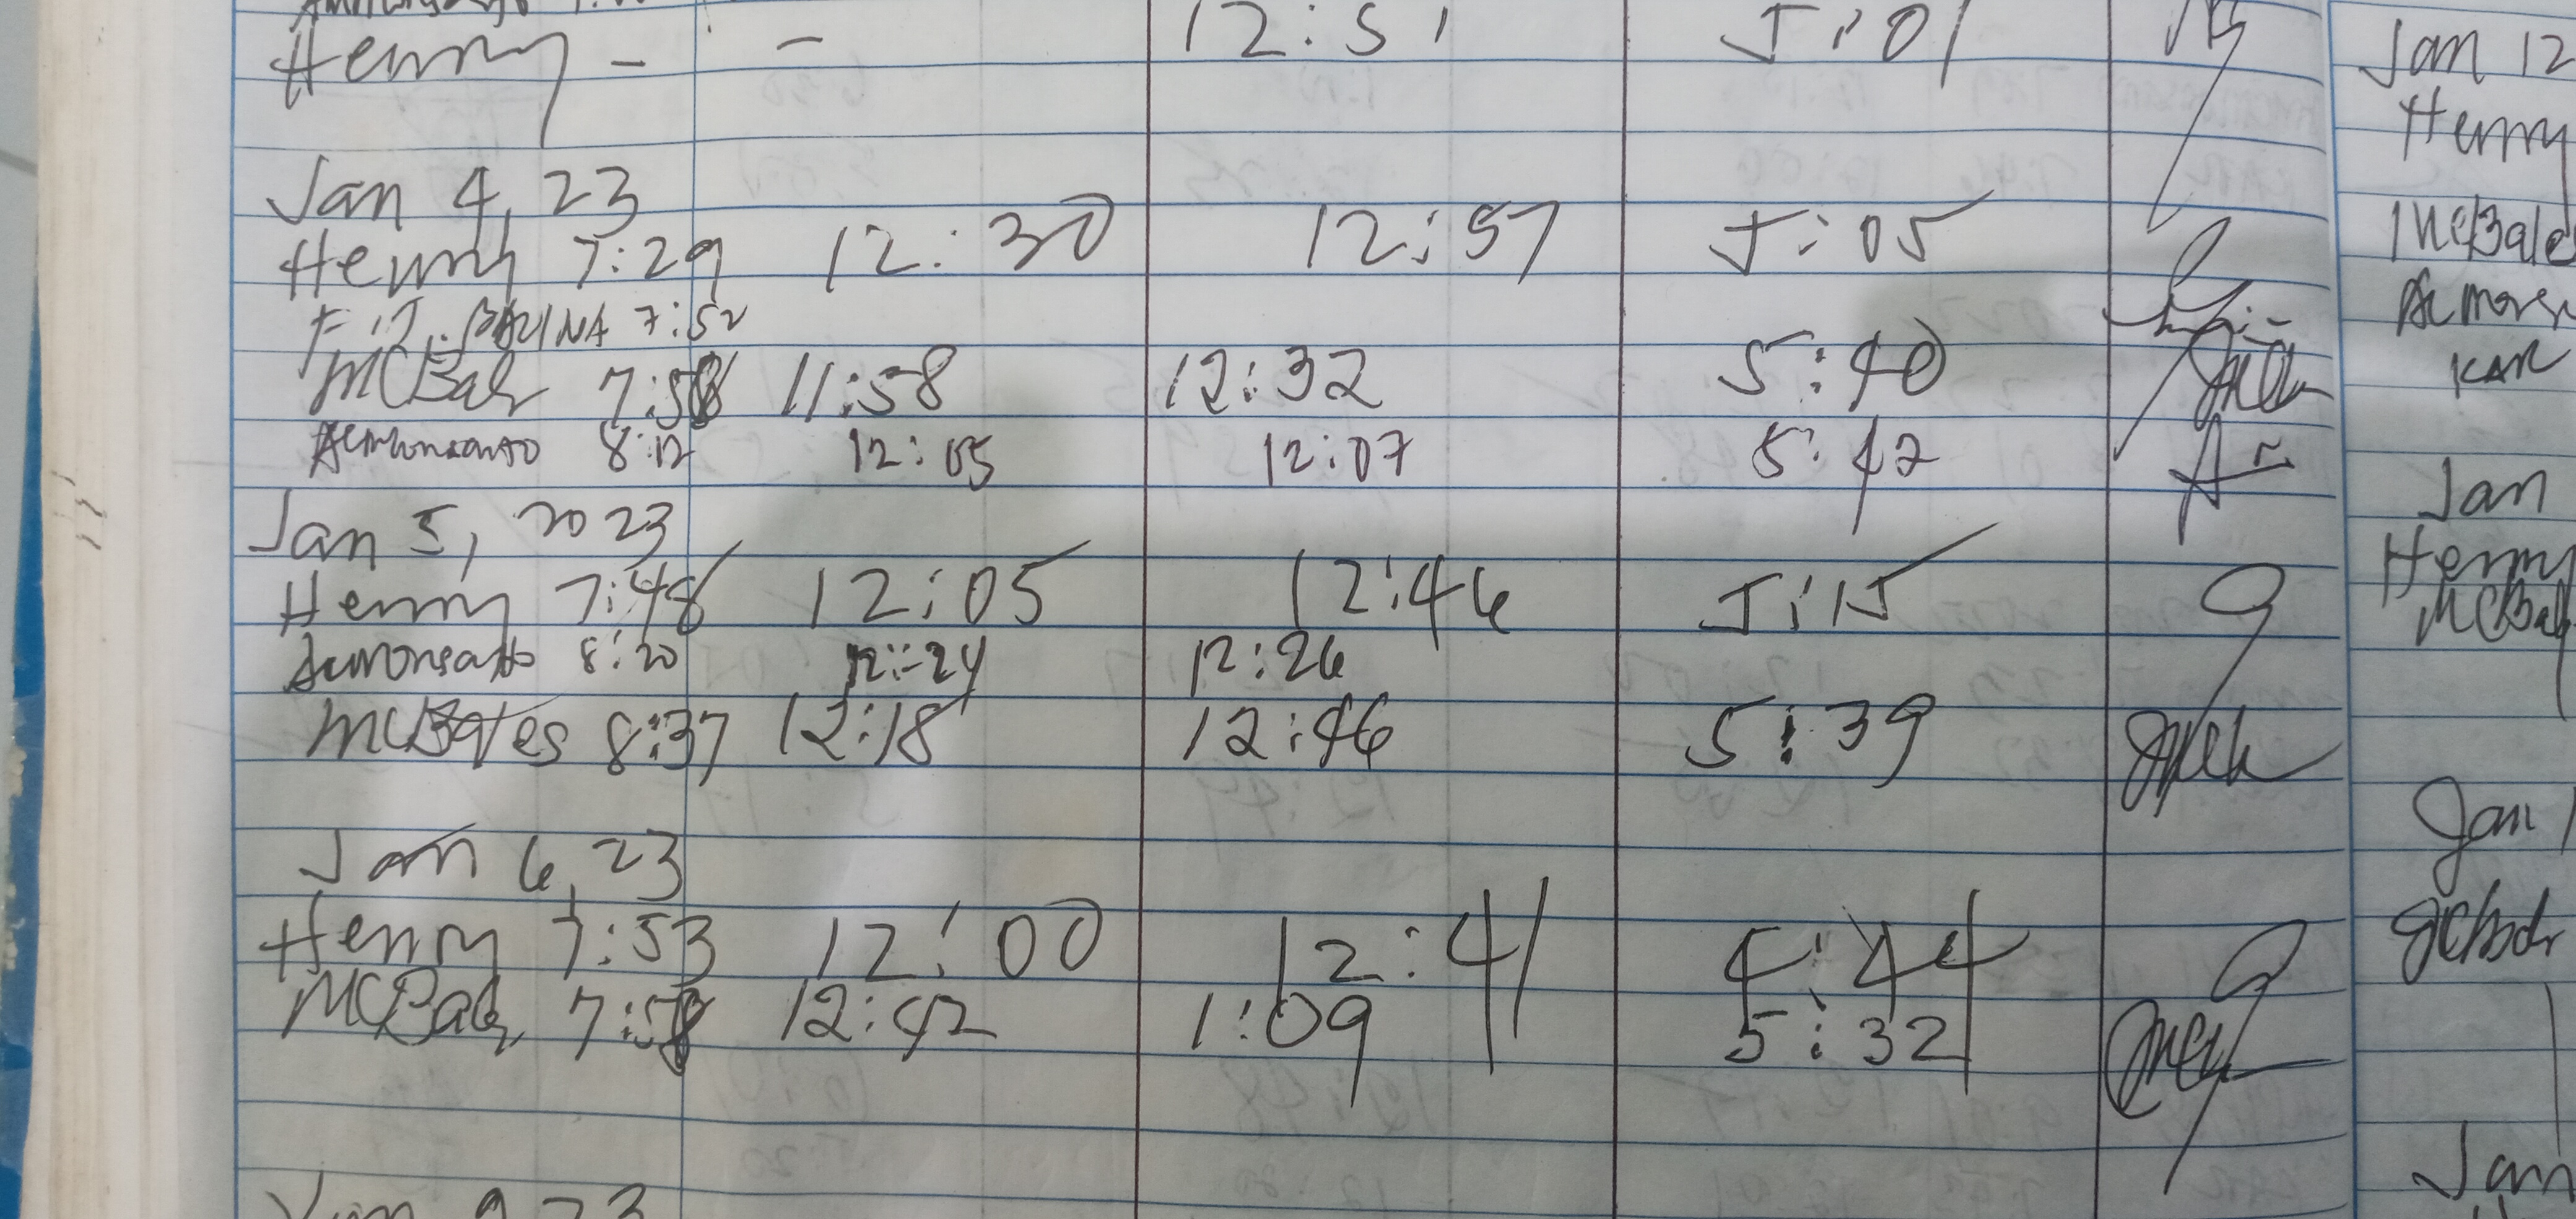 Henry - - 12:51 5:01
Jan 4, 23
Henry 7:29 12:30 12:57 5:05
7:52
MCBals 7:58 11:58 12:32 5:40
Acmonsanto 8:12 12:05 12:07 5:42
Jan 5, 2023
Henry 7:48 12:05 12:46 5:15
Acmonsanto 8:20 12:24 12:26
MCBales 8:37 12:18 12:46 5:39
Jan 6, 23
Henry 7:53 12:00 12:41 4:44
MCBals 7:58 12:42 1:09 5:32
Jan 9 23
Jan 12
Henry
MCBale
Acmonsa
KAR
Jan
Henry
MCBal
Jan 1
Jan